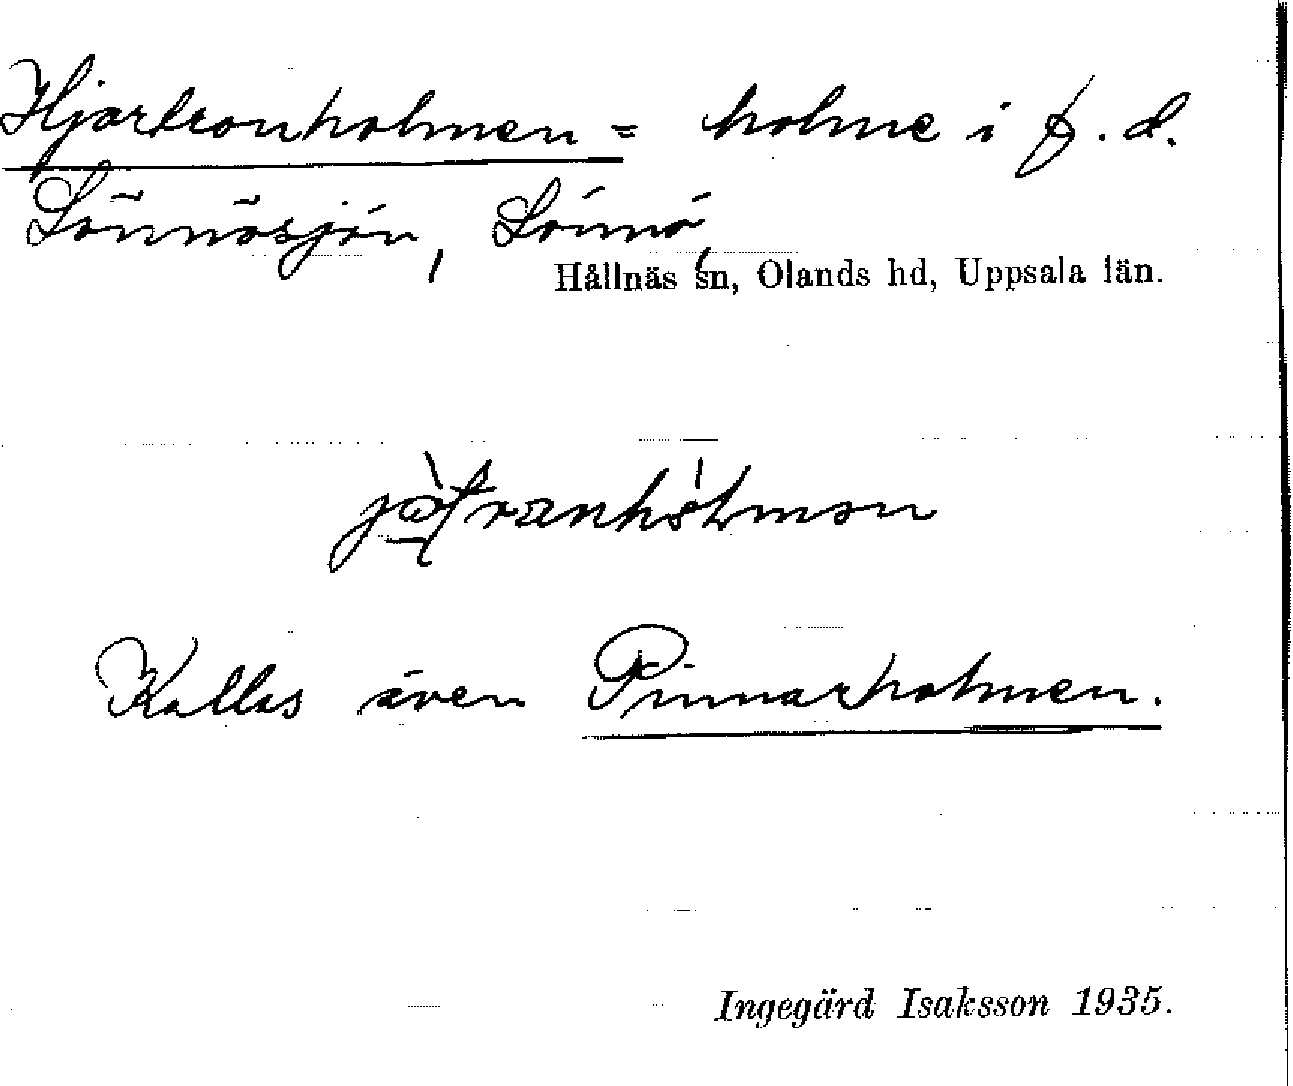 Hjortronholmen = holme i f. d.
Lönnösjön, Lönnö,
Hållnäs sn, Olands hd, Uppsala län.
Kallas även Pinnarholmen.
Ingegärd Isaksson 1935.